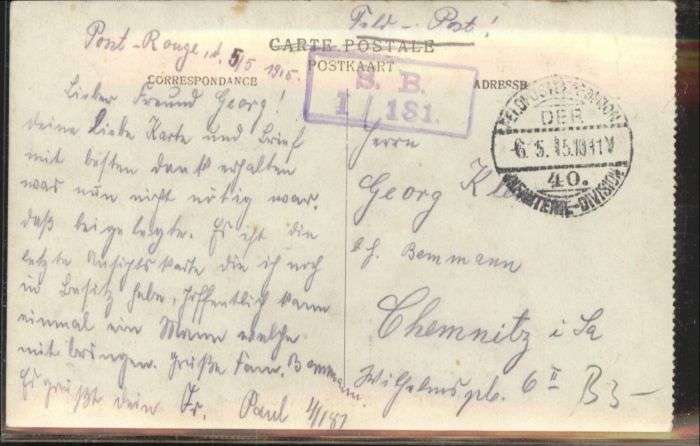 Feld-Post!
Pont-Rouge, d. 5/5 1915.
CARTE POSTALE
POSTKAART
CORRESPONDANCE
ADRESSE
S. B.
1 / 181.
DER
6. 5. 15. 10-11 V
40.
INFANTERIE-DIVISION
Lieber Freund Georg!
deine Liebe Karte und Brief
mit besten dank erhalten
was nun nicht nötig war,
daß beigelegte. Es ist die
letzte Ansichtskarte die ich noch
in Besitz habe, hoffentlich kann
einmal ein Mann welche
mit bringen. Grüße Fam. Bemmann.
Es grüßt dein Fr. Paul 1/181
Herrn
Georg
Bemmann
Chemnitz i Sa
Wilhelmspl. 6 II B3-